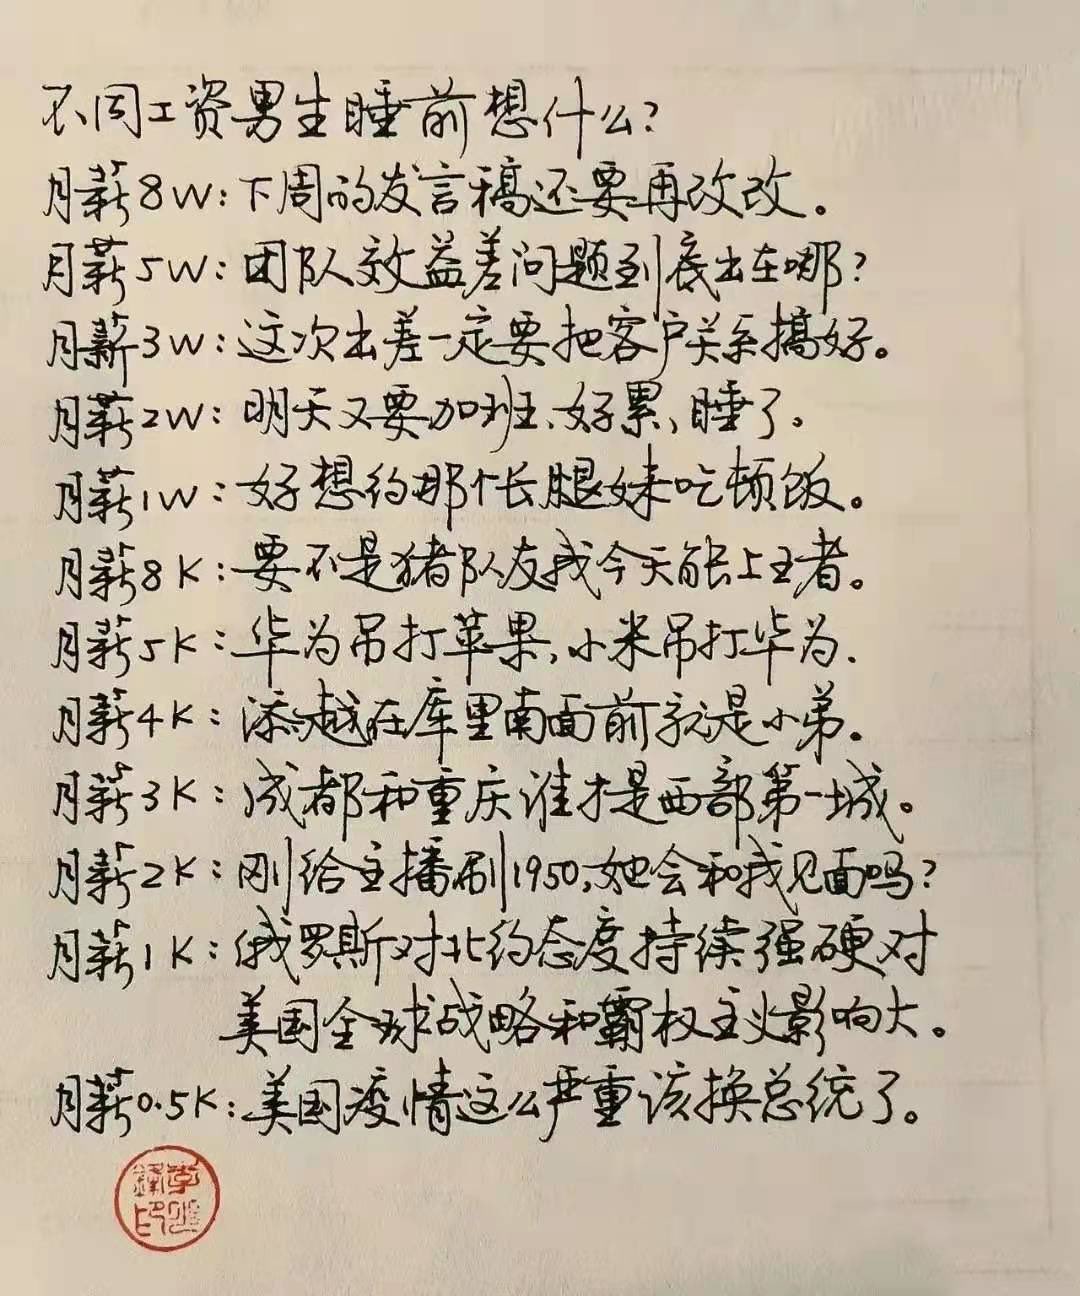 不同工资男生睡前想什么?
月薪8W:下周的发言稿还要再改改。
月薪5W:团队效益差问题到底出在哪?
月薪3W:这次出差一定要把客户关系搞好。
月薪2W:明天又要加班、好累、睡了。
月薪1W:好想约那个长腿妹吃顿饭。
月薪8K:要不是猪队友我今天能上王者。
月薪5K:华为吊打苹果,小米吊打华为.
月薪4K:添越在库里南面前就是小弟。
月薪3K:成都和重庆谁才是西部第一城。
月薪2K:刚给主播刷1950,她会和我见面吗?
月薪1K:俄罗斯对北约态度持续强硬对
美国全球战略和霸权主义影响大。
月薪0.5K:美国疫情这么严重该换总统了。